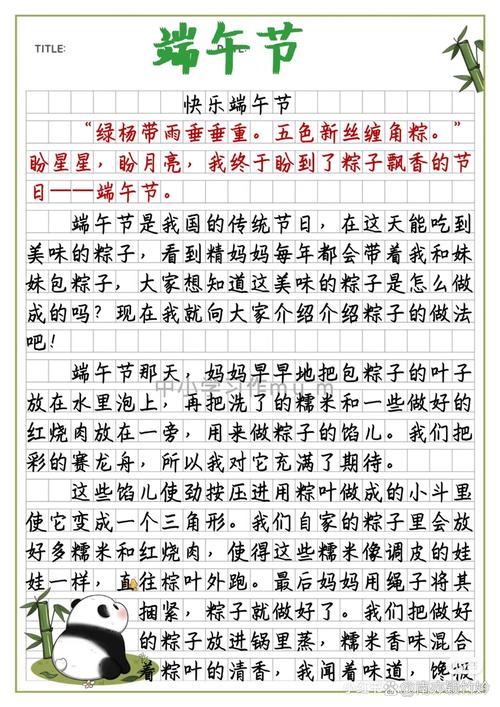 TITLE:
端午节
快乐端午节
“绿杨带雨垂垂重。五色新丝缠角粽。”
盼星星，盼月亮，我终于盼到了粽子飘香的节
日——端午节。
端午节是我国的传统节日，在这天能吃到
美味的粽子，看到精妈妈每年都会带着我和妹
妹包粽子，大家想知道这美味的粽子是怎么做
成的吗？现在我就向大家介绍介绍粽子的做法
吧！
端午节那天，妈妈早早地把包粽子的叶子
放在水里泡上，再把洗了的糯米和一些做好的
红烧肉放在一旁，用来做粽子的馅儿。我们把
彩的赛龙舟，所以我对它充满了期待。
这些馅儿使劲按压进用粽叶做成的小斗里
使它变成一个三角形。我们自家的粽子里会放
好多糯米和红烧肉，使得这些糯米像调皮的娃
娃一样，直往棕叶外跑。最后妈妈用绳子将其
捆紧，粽子就做好了。我们把做好
的粽子放进锅里蒸，糯米香味混合
着粽叶的清香，我闻着味道，馋极